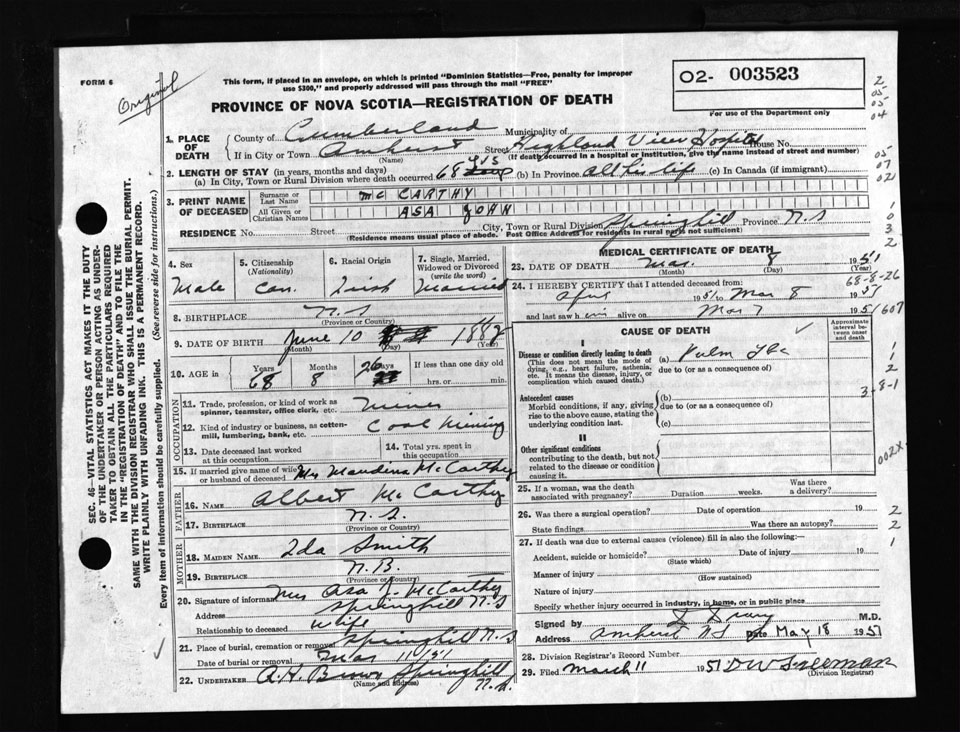 FORM 6
Original
This form, if placed in an envelope, on which is printed "Dominion Statistics—Free, penalty for improper
use $300," and properly addressed will pass through the mail "FREE"
PROVINCE OF NOVA SCOTIA—REGISTRATION OF DEATH
O2- 003523
For use of the Department only
2
05
05
04
05
07
02
1
0
3
2
1. PLACE OF DEATH
County of Cumberland Municipality of
If in City or Town Amherst Street Highland View Hospital House No.
(Name) (If death occurred in a hospital or institution, give the name instead of street and number)
2. LENGTH OF STAY (in years, months and days)
(a) In City, Town or Rural Division where death occurred 68 yrs (b) In Province All his life (c) In Canada (if immigrant)
3. PRINT NAME OF DECEASED
Surname or Last Name Mc CARTHY
All Given or Christian Names ASA JOHN
RESIDENCE No. Street City, Town or Rural Division Springhill Province N.S
(Residence means usual place of abode. Post Office Address for residents in rural not sufficient)
4. Sex Male
5. Citizenship (Nationality) Can.
6. Racial Origin Irish
7. Single, Married, Widowed or Divorced (write the word) Married
8. BIRTHPLACE N.S
(Province or Country)
9. DATE OF BIRTH June 10 1882
(Month) (Day)
10. AGE in Years 68 Months 8 Days 26 If less than one day old
hrs. or min.
OCCUPATION
11. Trade, profession, or kind of work as
spinner, teamster, office clerk, etc. Miner
12. Kind of industry or business, as cotton-
mill, lumbering, bank, etc. Coal Mining
13. Date deceased last worked
at this occupation
14. Total yrs. spent in
this occupation
15. If married give name of wife
or husband of deceased Mrs Maudena McCarthy
FATHER
16. Name Albert McCarthy
17. Birthplace N.S.
(Province or Country)
MOTHER
18. MAIDEN NAME Ida Smith
19. BIRTHPLACE N.B.
(Province or Country)
20. Signature of informant Mrs Asa J. McCarthy
Address Springhill N.S
Relationship to deceased Wife
21. Place of burial, cremation or removal Springhill N.S
Date of burial or removal Mar 11/51
22. UNDERTAKER A.H. Brown Springhill
N.S.
(Name and address)
MEDICAL CERTIFICATE OF DEATH
23. DATE OF DEATH Mar. 8 1951
(Month) (Day) (Year)
68-8-26
24. I HEREBY CERTIFY that I attended deceased from:
April 1951 to Mar 8 1951
and last saw him alive on Mar 7 1951
607
CAUSE OF DEATH
Approximate interval between onset and death
I
Disease or condition directly leading to death (a) Pulm Tbc
(This does not mean the mode of dying, e.g., heart failure, asthenia, etc. It means the disease, injury, or complication which caused death.)
due to (or as a consequence of)
Antecedent causes
Morbid conditions, if any, giving rise to the above cause, stating the underlying condition last.
(b)
due to (or as a consequence of)
(c)
II
Other significant conditions
contributing to the death, but not related to the disease or condition causing it.
1
1
2
3-8-1
002X
25. If a woman, was the death
associated with pregnancy? Duration weeks. Was there a delivery?
26. Was there a surgical operation? Date of operation 19
State findings Was there an autopsy?
2
2
27. If death was due to external causes (violence) fill in also the following:—
1
Accident, suicide or homicide? Date of injury 19
(State which)
Manner of injury
(How sustained)
Nature of injury
Specify whether injury occurred in industry, in home, or in public place
Signed by M.D.
Address Amherst NS Date May 18 1951
28. Division Registrar's Record Number
29. Filed March 11 1951 DW Freeman
(Division Registrar)
SEC. 46—VITAL STATISTICS ACT MAKES IT THE DUTY
OF THE UNDERTAKER OR PERSON ACTING AS UNDER-
TAKER TO OBTAIN ALL THE PARTICULARS REQUIRED
IN THE "REGISTRATION OF DEATH" AND TO FILE THE
SAME WITH THE DIVISION REGISTRAR WHO SHALL ISSUE THE BURIAL PERMIT.
WRITE PLAINLY WITH UNFADING INK. THIS IS A PERMANENT RECORD.
Every item of information should be carefully supplied. (See reverse side for instructions.)